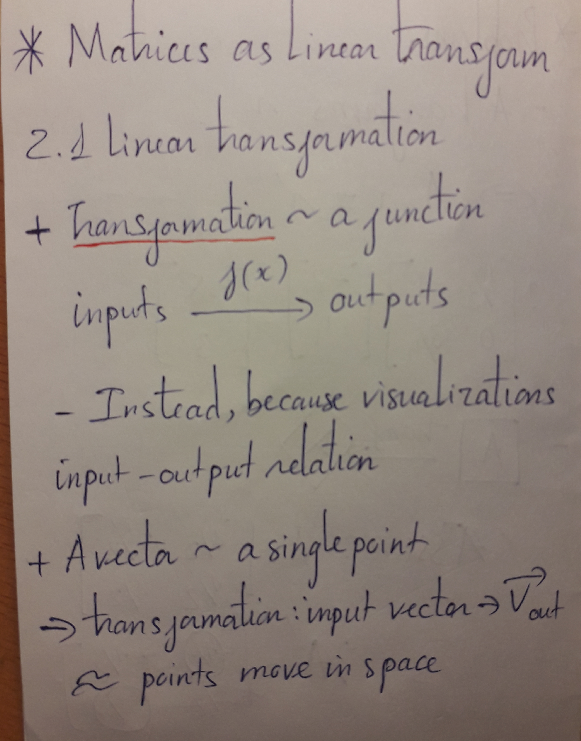 * Matrices as linear transform
2.1 linear transformation
+ Transformation ~ a function
f(x)
inputs → outputs
- Instead, because visualizations
input-output relation
+ A vector ~ a single point
⇒ transformation: input vector → V⃗out
≈ points move in space